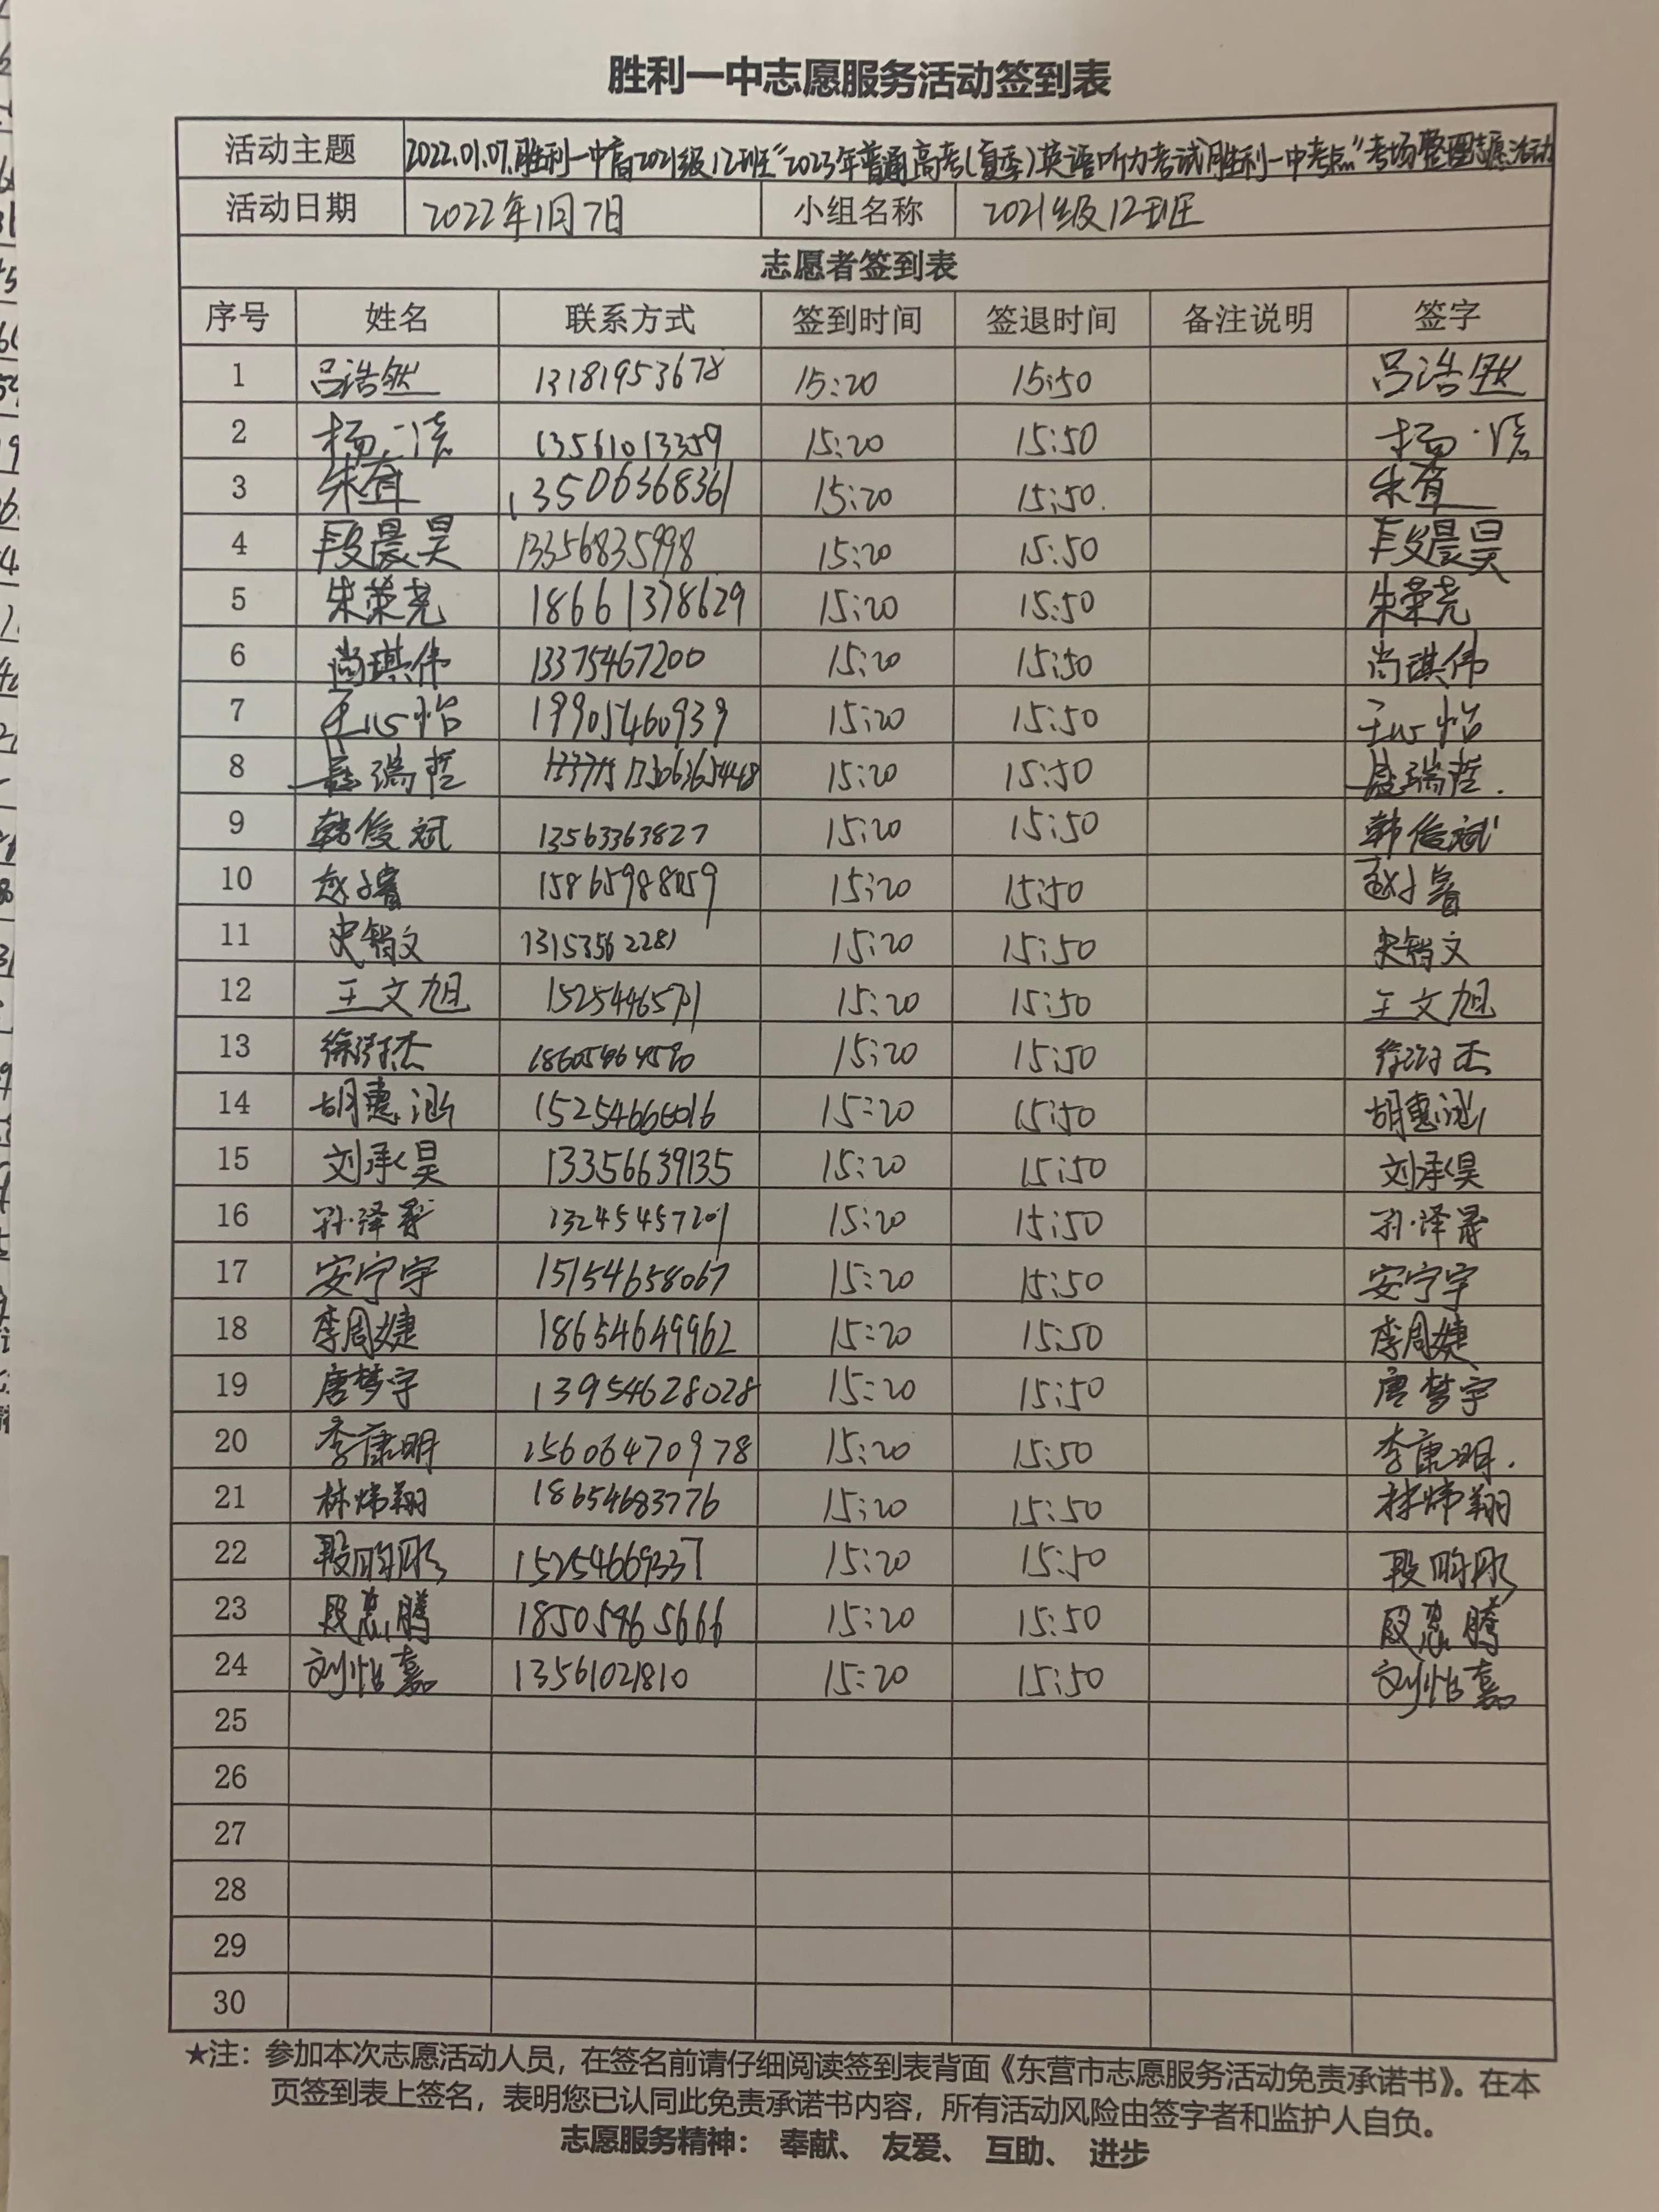 胜利一中志愿服务活动签到表
活动主题 2022.01.07.胜利一中高2021级12班"2023年普通高考(夏季)英语听力考试胜利一中考点"考场整理志愿活动
活动日期 2022年1月7日 小组名称 2021级12班
志愿者签到表
序号 姓名 联系方式 签到时间 签退时间 备注说明 签字
1 吕浩然 13181953678 15:20 15:50 吕浩然
2 杨一 13561013359 15:20 15:50 杨一
3 朱萱 13506368361 15:20 15:50. 朱萱
4 段晨昊 13356835998 15:20 15:50 段晨昊
5 朱荣尧 18661378629 15:20 15:50 朱荣尧
6 尚琪伟 13375467200 15:20 15:50 尚琪伟
7 王心怡 19905460939 15:20 15:50 王心怡
8 瑞哲 15:20 15:50 瑞哲.
9 韩俊斌 13563363827 15:20 15:50 韩俊斌
10 赵子睿 15:20 15:50 赵子睿
11 史智文 13153562281 15:20 15:50 史智文
12 王文旭 15:20 15:50 王文旭
13 徐 杰 15:20 15:50 徐 杰
14 胡惠涵 15254666016 15:20 15:50 胡惠涵
15 刘承昊 13356639135 15:20 15:50 刘承昊
16 孙泽晟 13245457201 15:20 15:50 孙泽晟
17 安宁宇 15154658067 15:20 15:50 安宁宇
18 李周婕 18654649962 15:20 15:50 李周婕
19 唐梦宇 13954628028 15:20 15:50 唐梦宇
20 李康明 15606470978 15:20 15:50 李康明.
21 林炜翔 18654683776 15:20 15:50 林炜翔
22 段昀彤 15254669337 15:20 15:50 段昀彤
23 段 腾 18505465666 15:20 15:50 段 腾
24 刘怡嘉 13561021810 15:20 15:50 刘怡嘉
25
26
27
28
29
30
★注：参加本次志愿活动人员，在签名前请仔细阅读签到表背面《东营市志愿服务活动免责承诺书》。在本
页签到表上签名，表明您已认同此免责承诺书内容，所有活动风险由签字者和监护人自负。
志愿服务精神： 奉献、 友爱、 互助、 进步